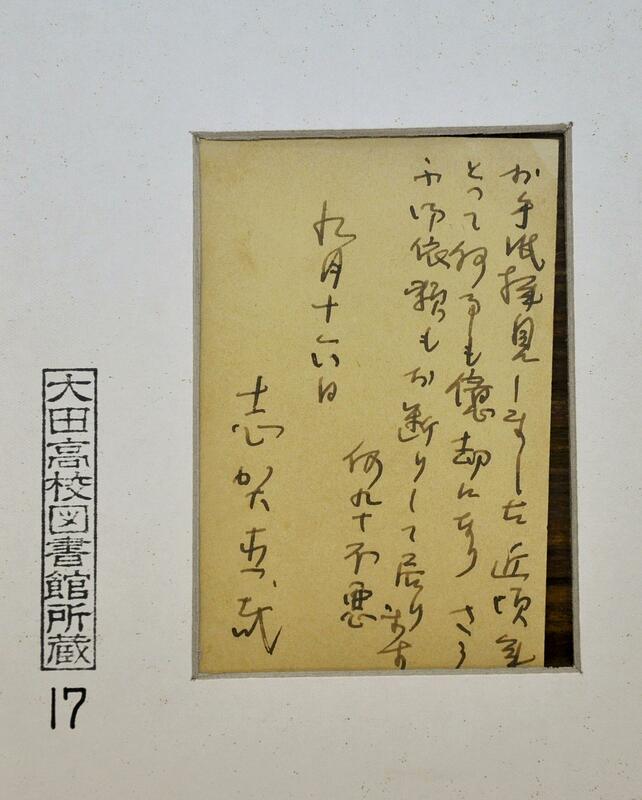 お手紙拝見しました近頃年
とって何事も億劫になり さう
御依頼もお断りして居ります
何卆不悪
九月十六日
志賀直哉
太田高校図書館所蔵
17